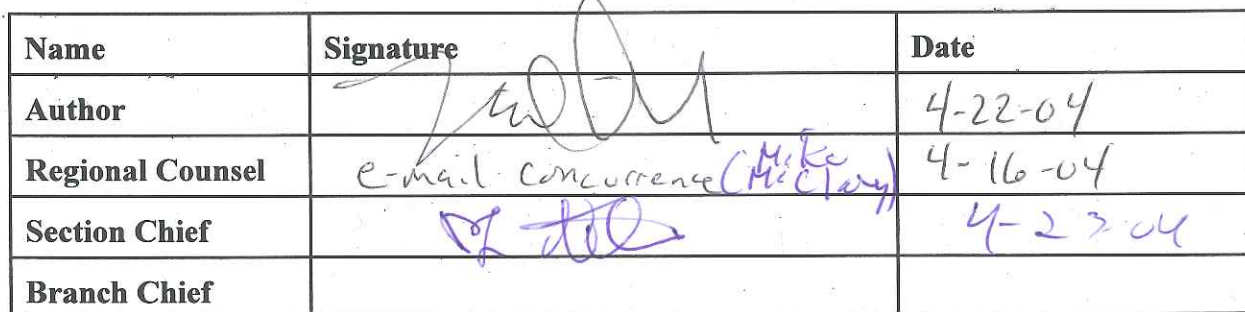 Name Signature Date
Author 4-22-04
Regional Counsel e-mail concurrence (Mike McClary) 4-16-04
Section Chief 4-23-04
Branch Chief